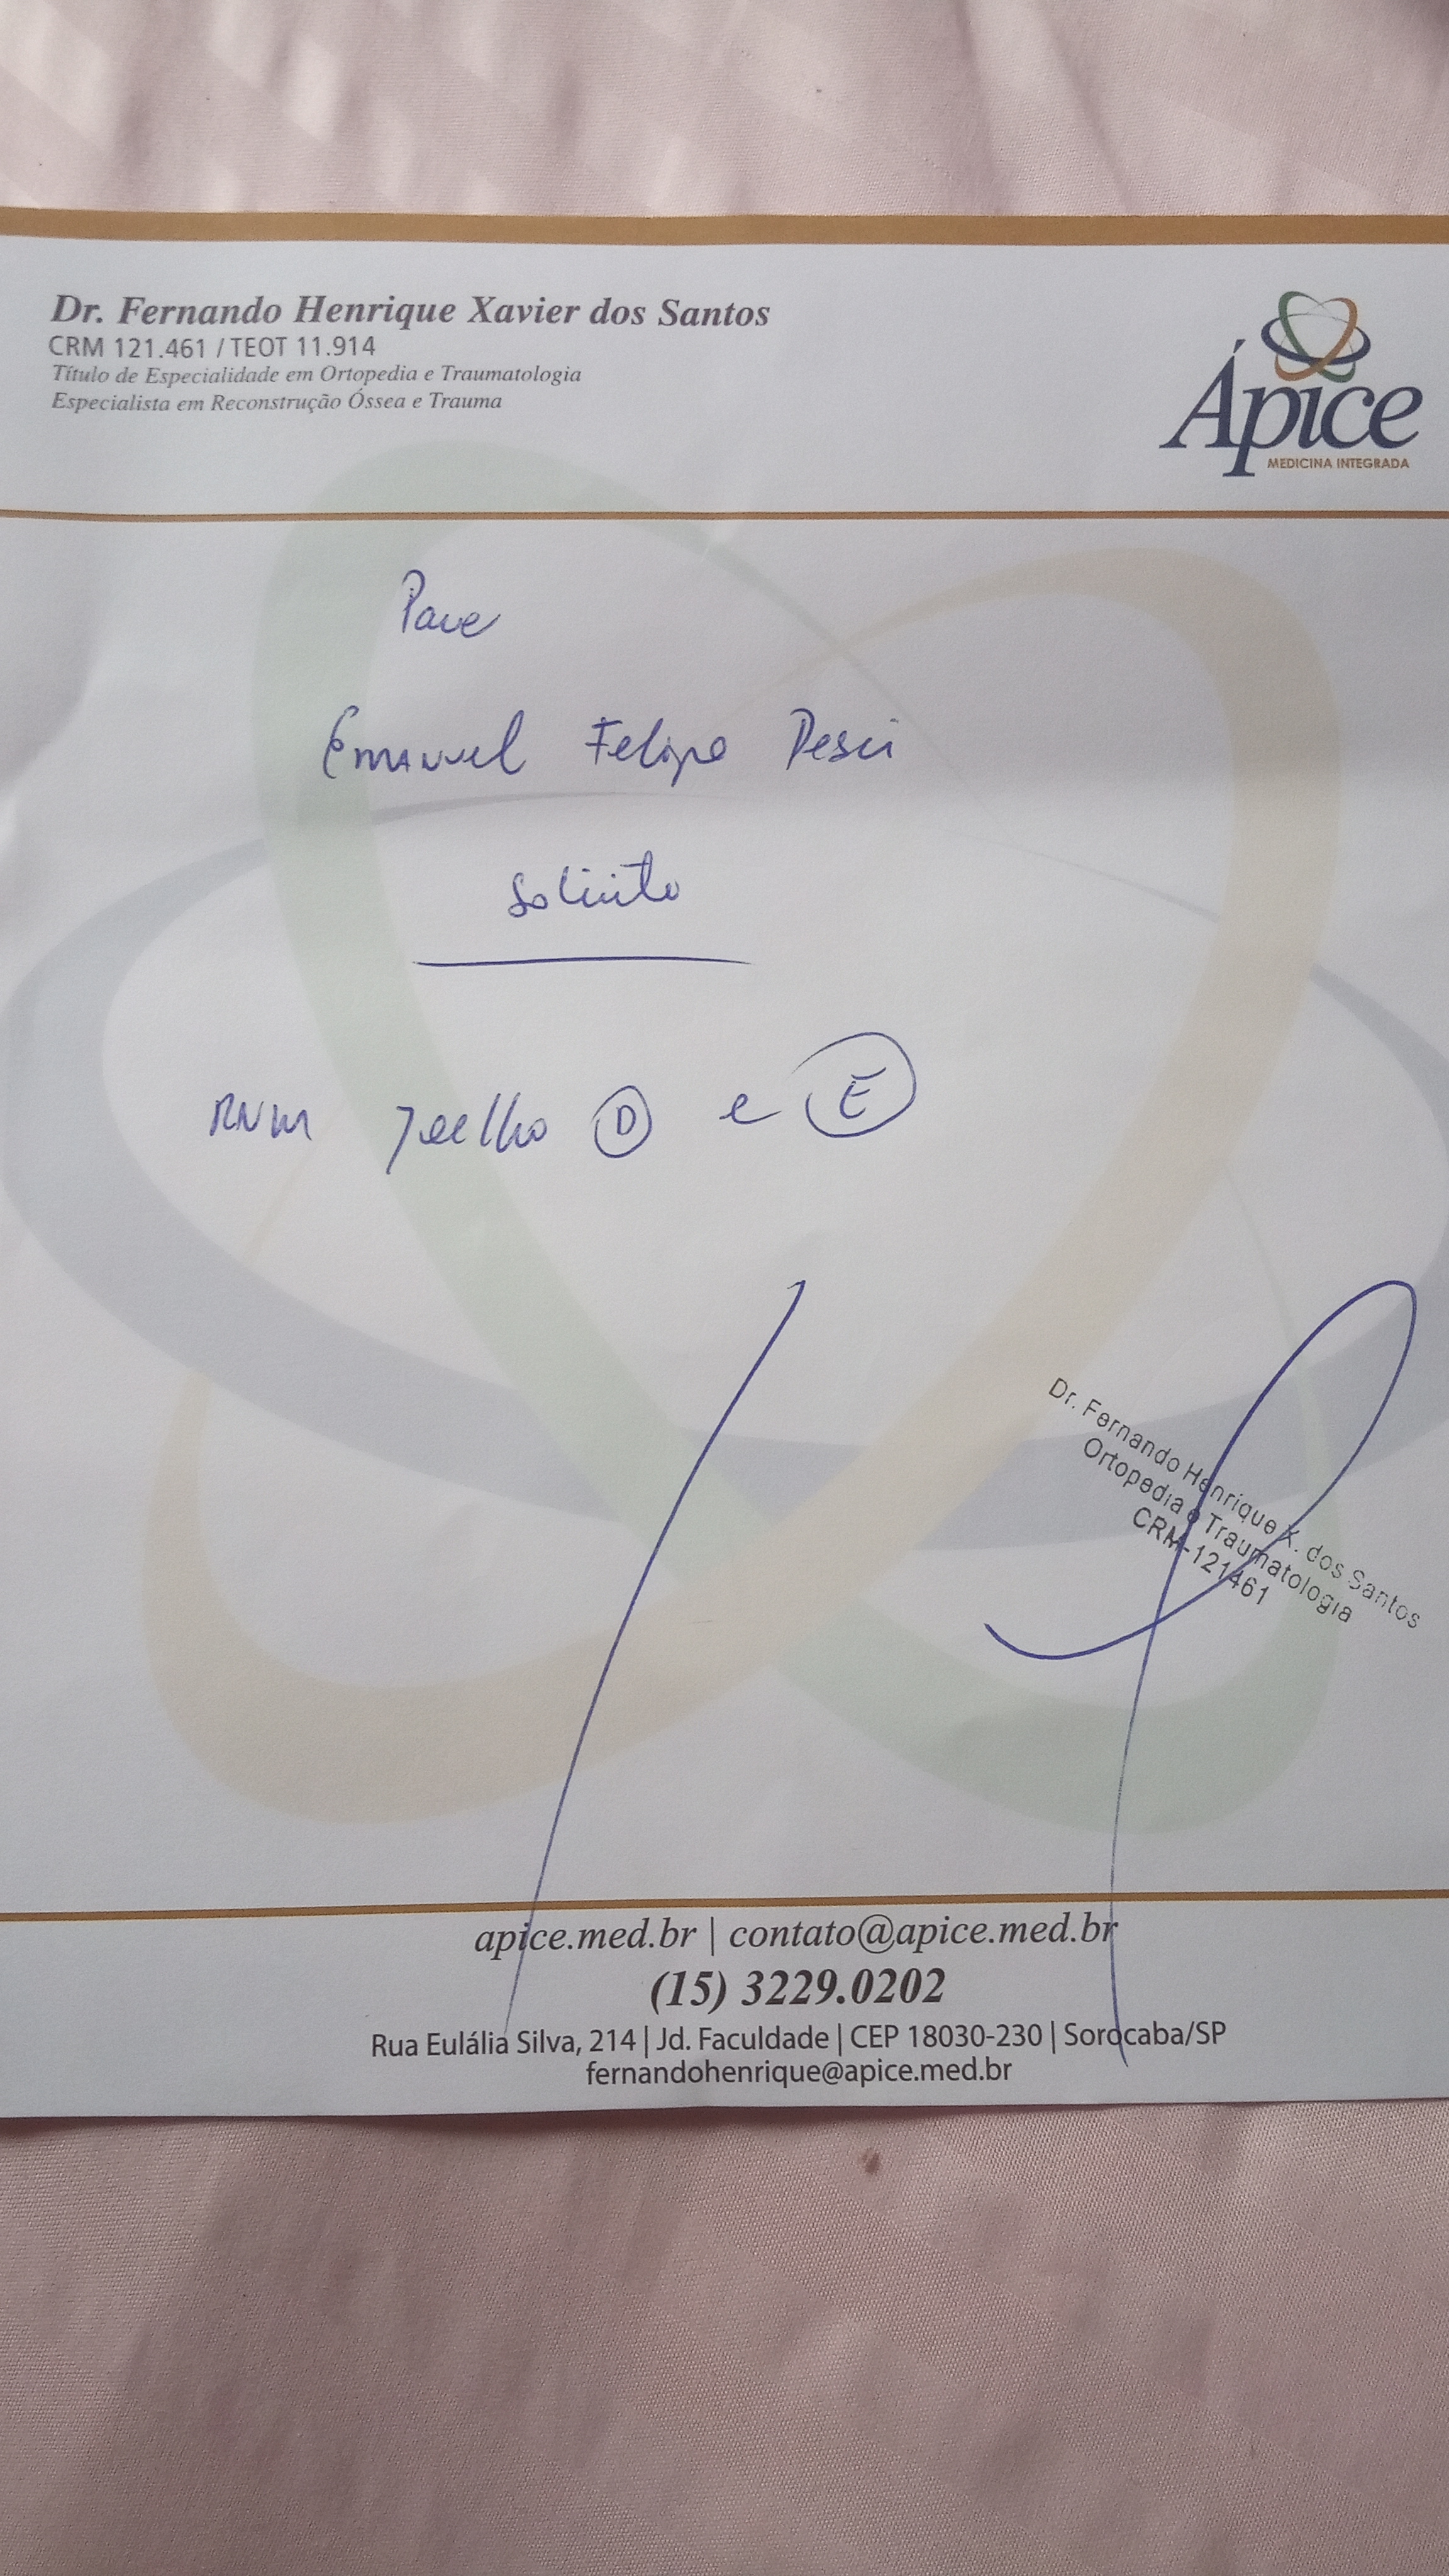 Dr. Fernando Henrique Xavier dos Santos
CRM 121.461 / TEOT 11.914
Título de Especialidade em Ortopedia e Traumatologia
Especialista em Reconstrução Óssea e Trauma
Ápice
MEDICINA INTEGRADA
Para
Emanuel Felipe
Solicito
RNM Joelho D e E
Dr. Fernando Henrique X. dos Santos
Ortopedia e Traumatologia
CRM-121461
apice.med.br | contato@apice.med.br
(15) 3229.0202
Rua Eulália Silva, 214 | Jd. Faculdade | CEP 18030-230 | Sorocaba/SP
fernandohenrique@apice.med.br